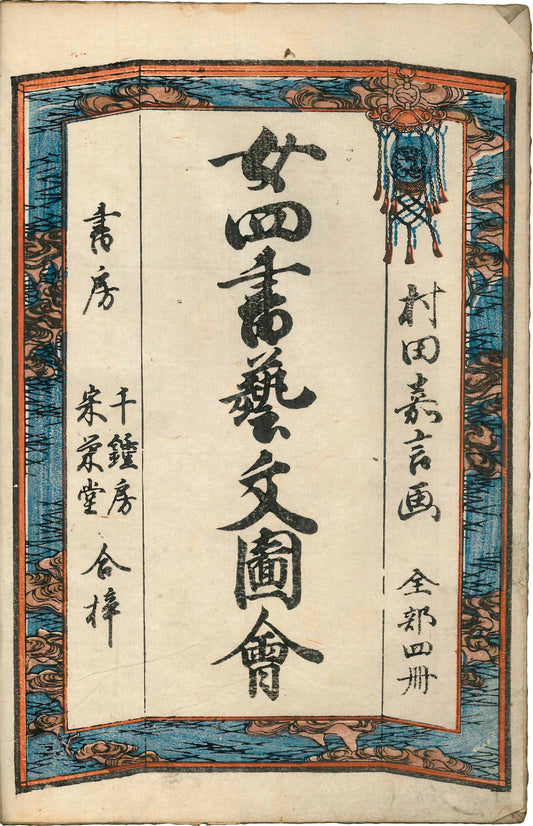 村田嘉言画 全部四冊
女四書藝文圖會
書房 千鍾房 宋榮堂 合梓